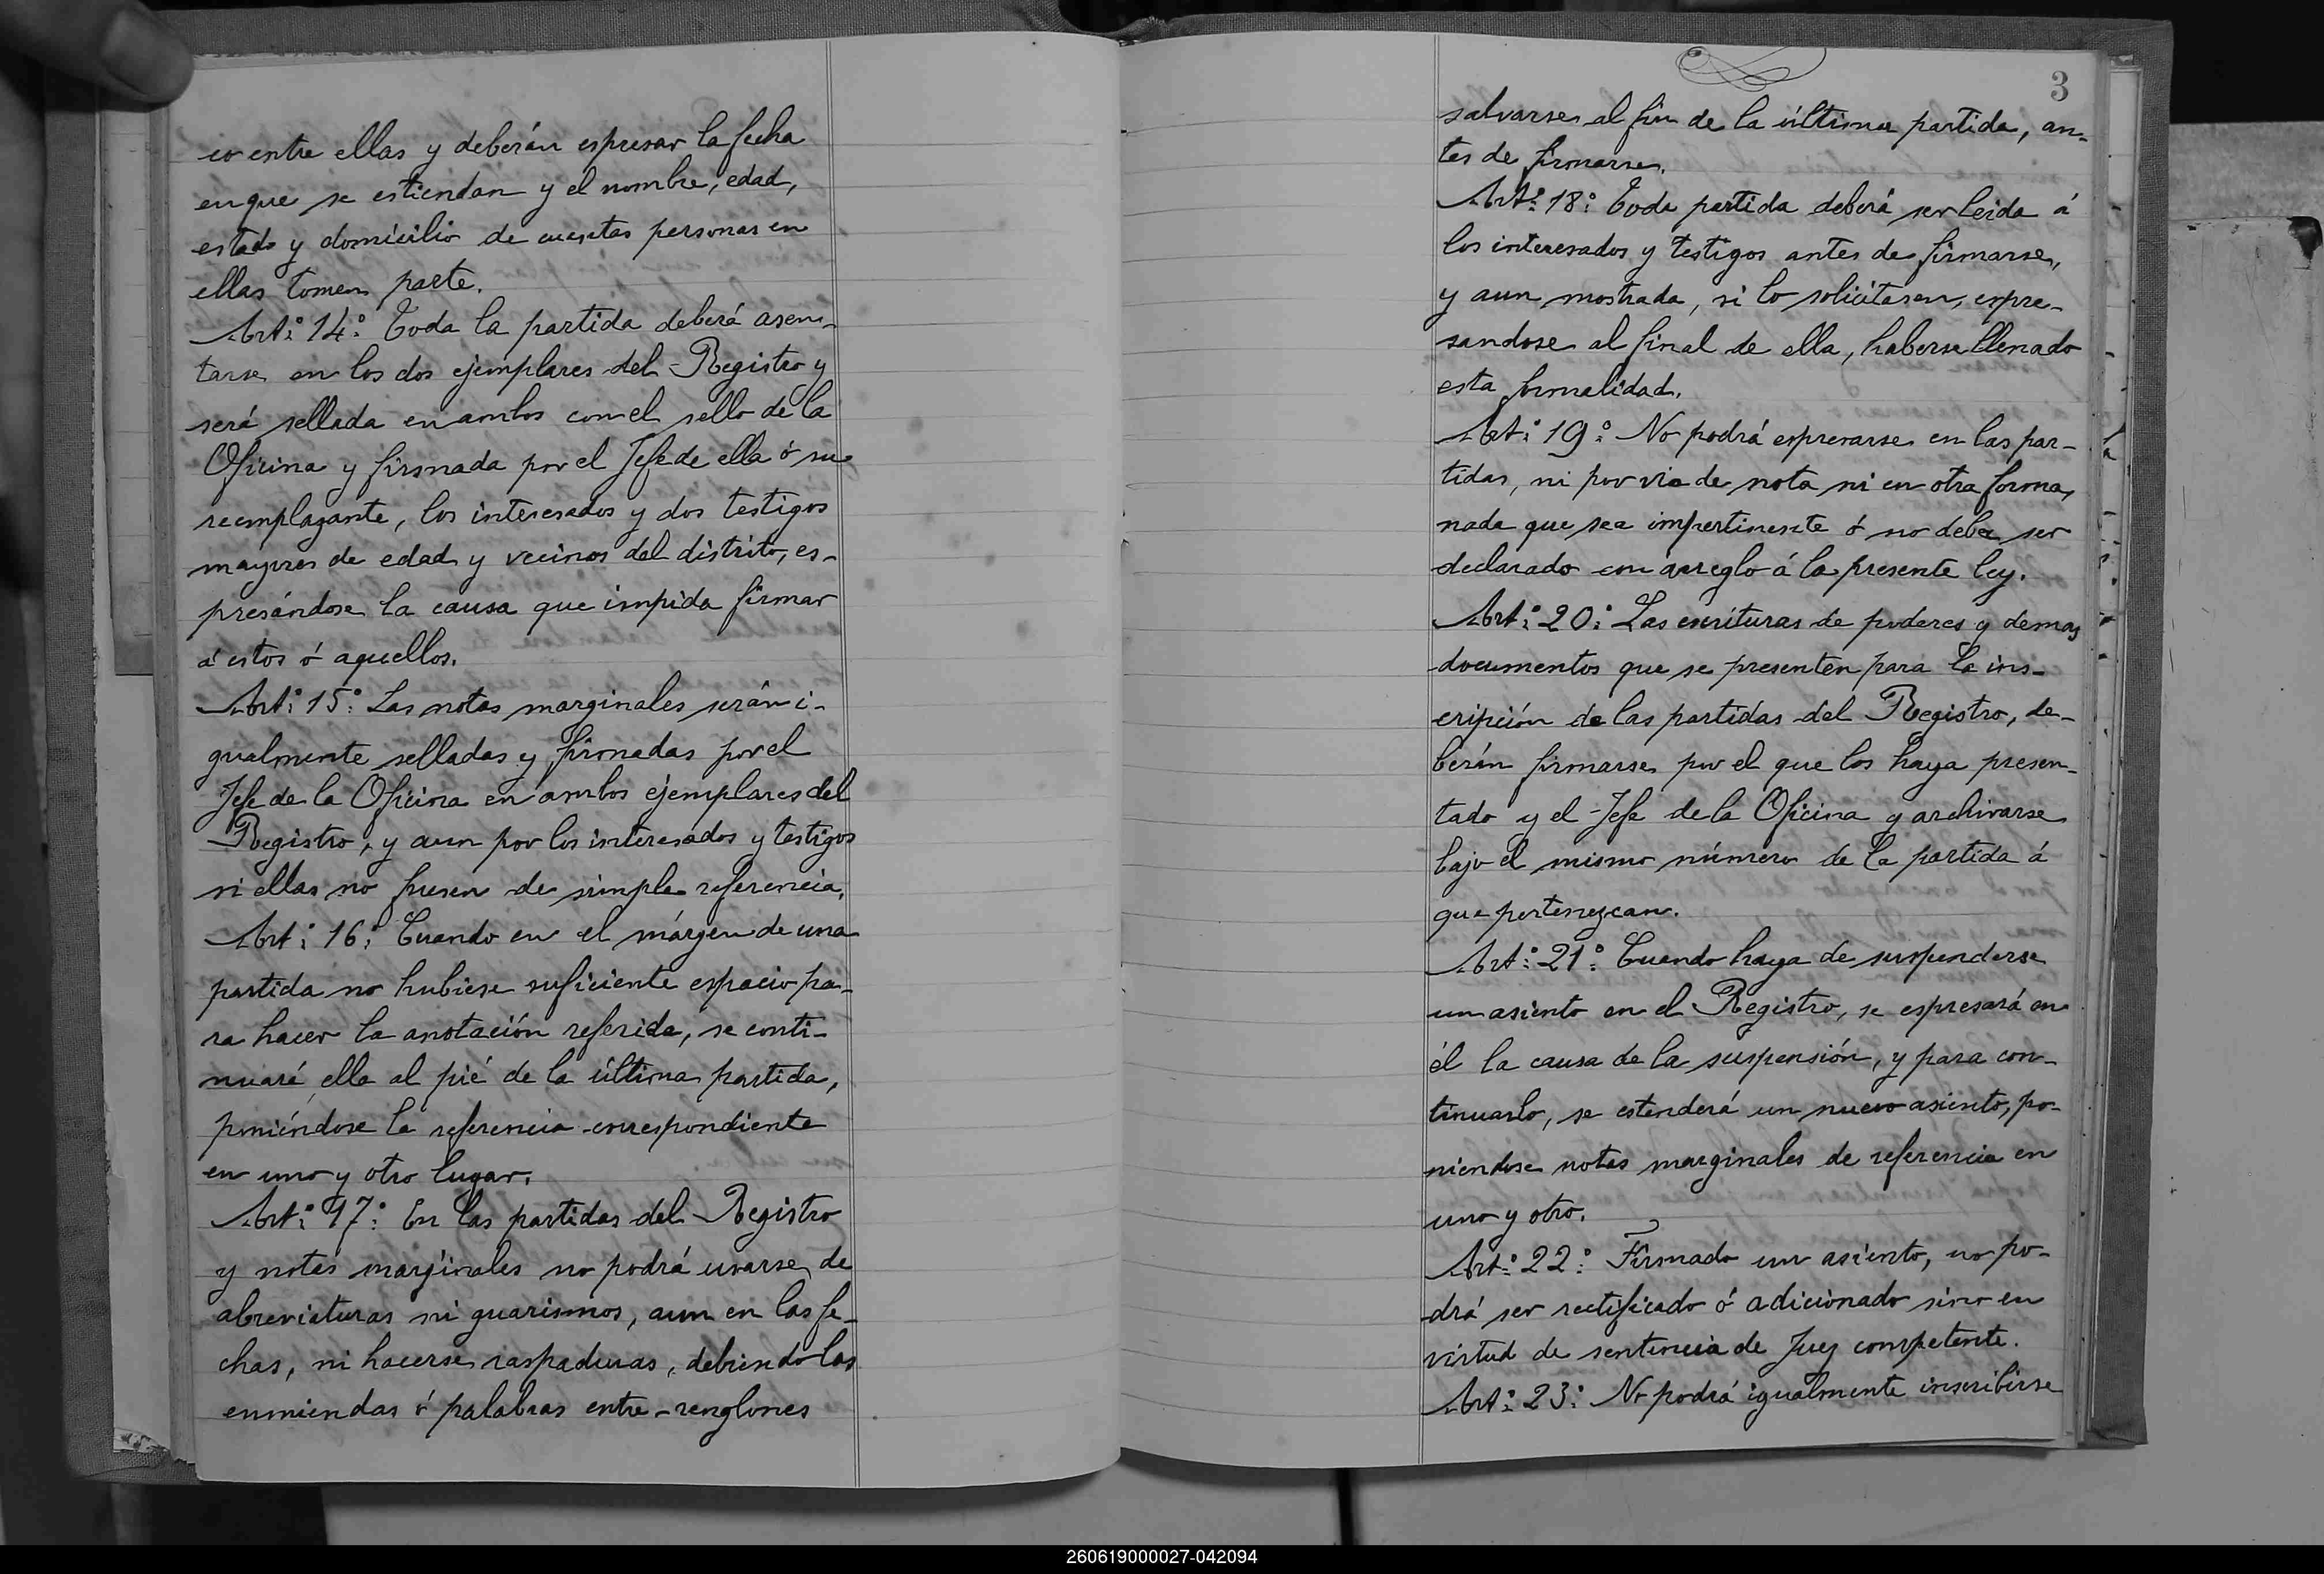 co entre ellas y deberán espresar la fecha
en que se estiendan y el nombre, edad,
estado y domicilio de cuantas personas en
ellas tomen parte.
Art.º 14.º Toda la partida deberá asen-
tarse en los dos ejemplares del Registro y
será sellada en ambos con el sello de la
Oficina y firmada por el Jefe de ella ó su
reemplazante, los interesados y dos testigos
mayores de edad y vecinos del distrito, es-
presándose la causa que impida firmar
á estos ó aquellos.
Art.º 15.º Las notas marginales serán i-
gualmente selladas y firmadas por el
Jefe de la Oficina en ambos ejemplares del
Registro, y aun por los interesados y testigos
si ellas no fuesen de simple referencia.
Art.º 16.º Cuando en el márgen de una
partida no hubiese suficiente espacio pa-
ra hacer la anotación referida, se conti-
nuará ella al pié de la última partida,
poniéndose la referencia correspondiente
en uno y otro lugar.
Art.º 17.º En las partidas del Registro
y notas marginales no podrá usarse de
abreviaturas ni guarismos, aun en las fe-
chas, ni hacerse raspaduras, debiendo las
enmiendas ó palabras entre-renglones
3
salvarse al fin de la última partida, an-
tes de firmarse.
Art.º 18.º Toda partida deberá ser leida á
los interesados y testigos antes de firmarse,
y aun mostrada, si lo solicitasen, espre-
sandose al final de ella, haberse llenado
esta formalidad.
Art.º 19.º No podrá espresarse en las par-
tidas, ni por via de nota ni en otra forma,
nada que sea impertinente ó no deba ser
declarado con arreglo á la presente ley.
Art.º 20.º Las escrituras de poderes y demas
documentos que se presenten para la ins-
cripción de las partidas del Registro, de-
berán firmarse por el que los haya presen-
tado y el Jefe de la Oficina y archivarse
bajo el mismo número de la partida á
que pertenezcan.
Art.º 21.º Cuando haya de suspenderse
un asiento en el Registro, se espresará en
él la causa de la suspensión, y para con-
tinuarlo, se estenderá un nuevo asiento, po-
niendose notas marginales de referencia en
uno y otro.
Art.º 22.º Firmado un asiento, no po-
drá ser rectificado ó adicionado sino en
virtud de sentencia de Juez competente.
Art.º 23.º No podrá igualmente inscribirse
260619000027-042094